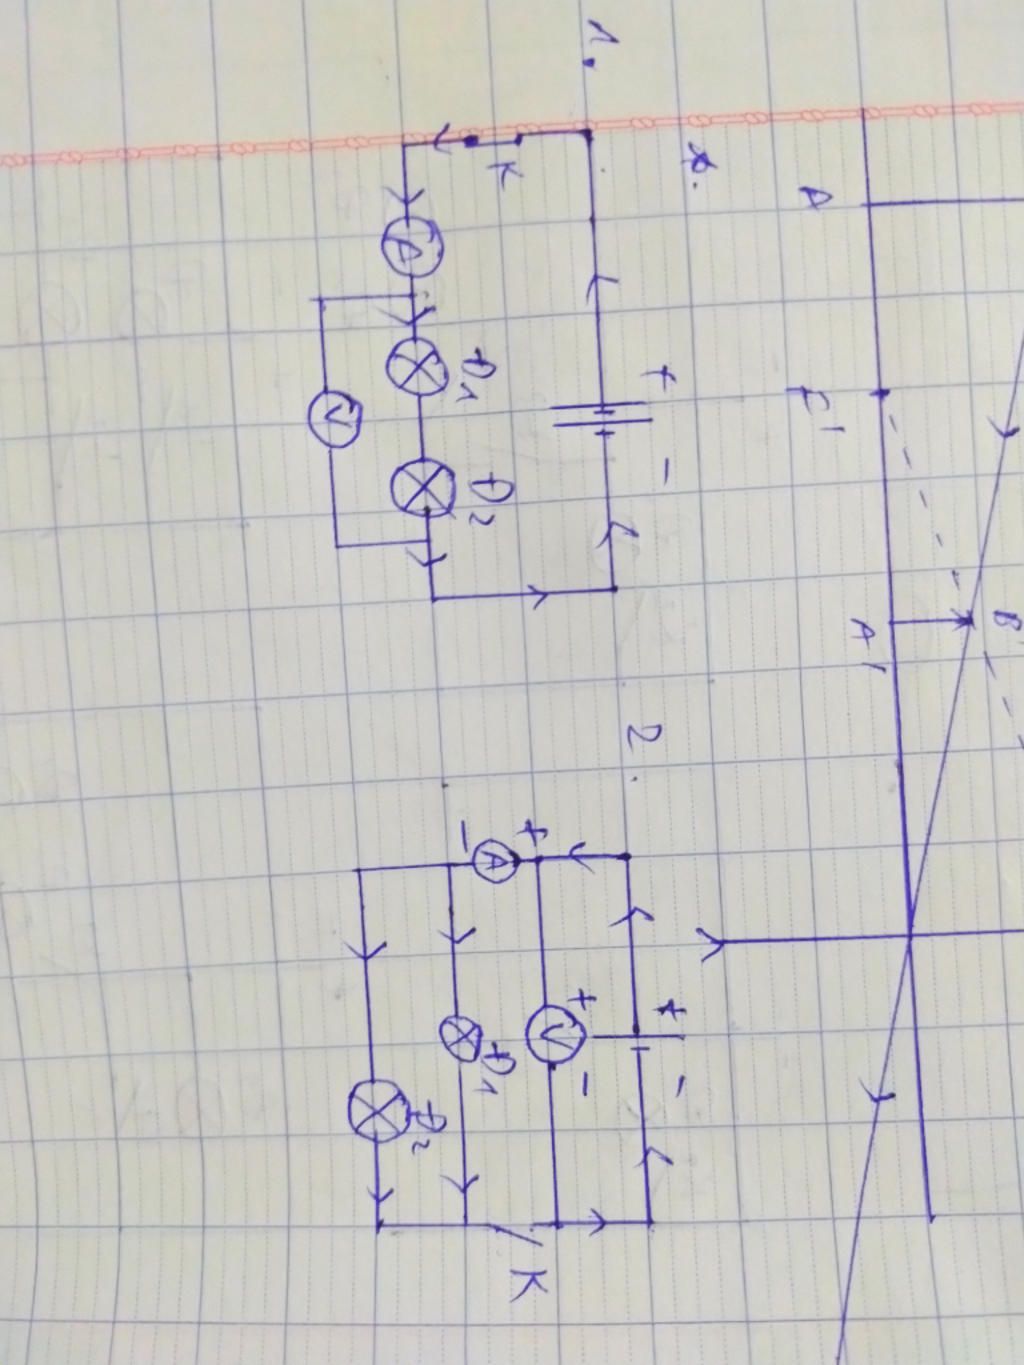 B'
A F' A'
1.
+ -
K
Đ1 Đ2
A
V
2.
+ -
+ -
V
+
A
-
K
Đ1
Đ2